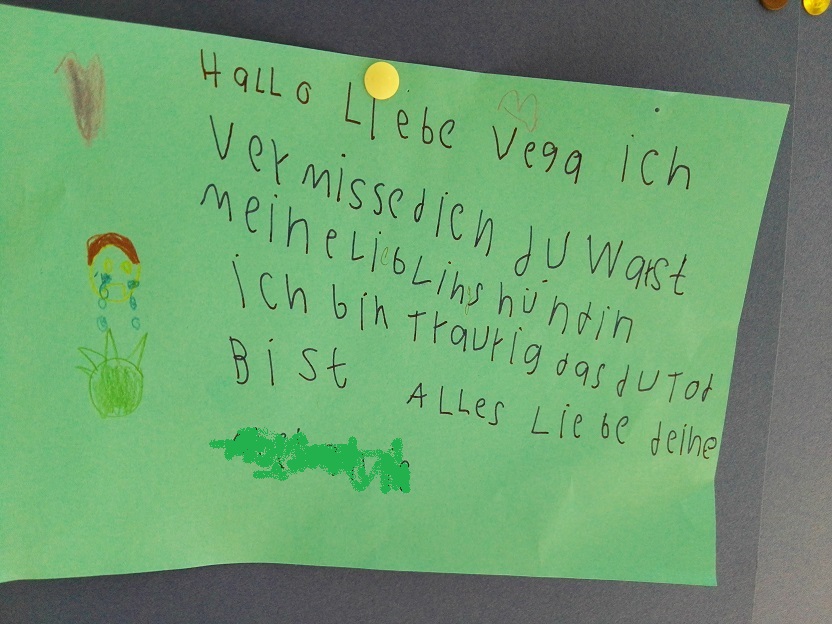 HaLLo Liebe Vega ich
Vermisse dich du Warst
meine LiebLins hündin
ich bin Traurig das du Tot
Bist ALLes Liebe deine